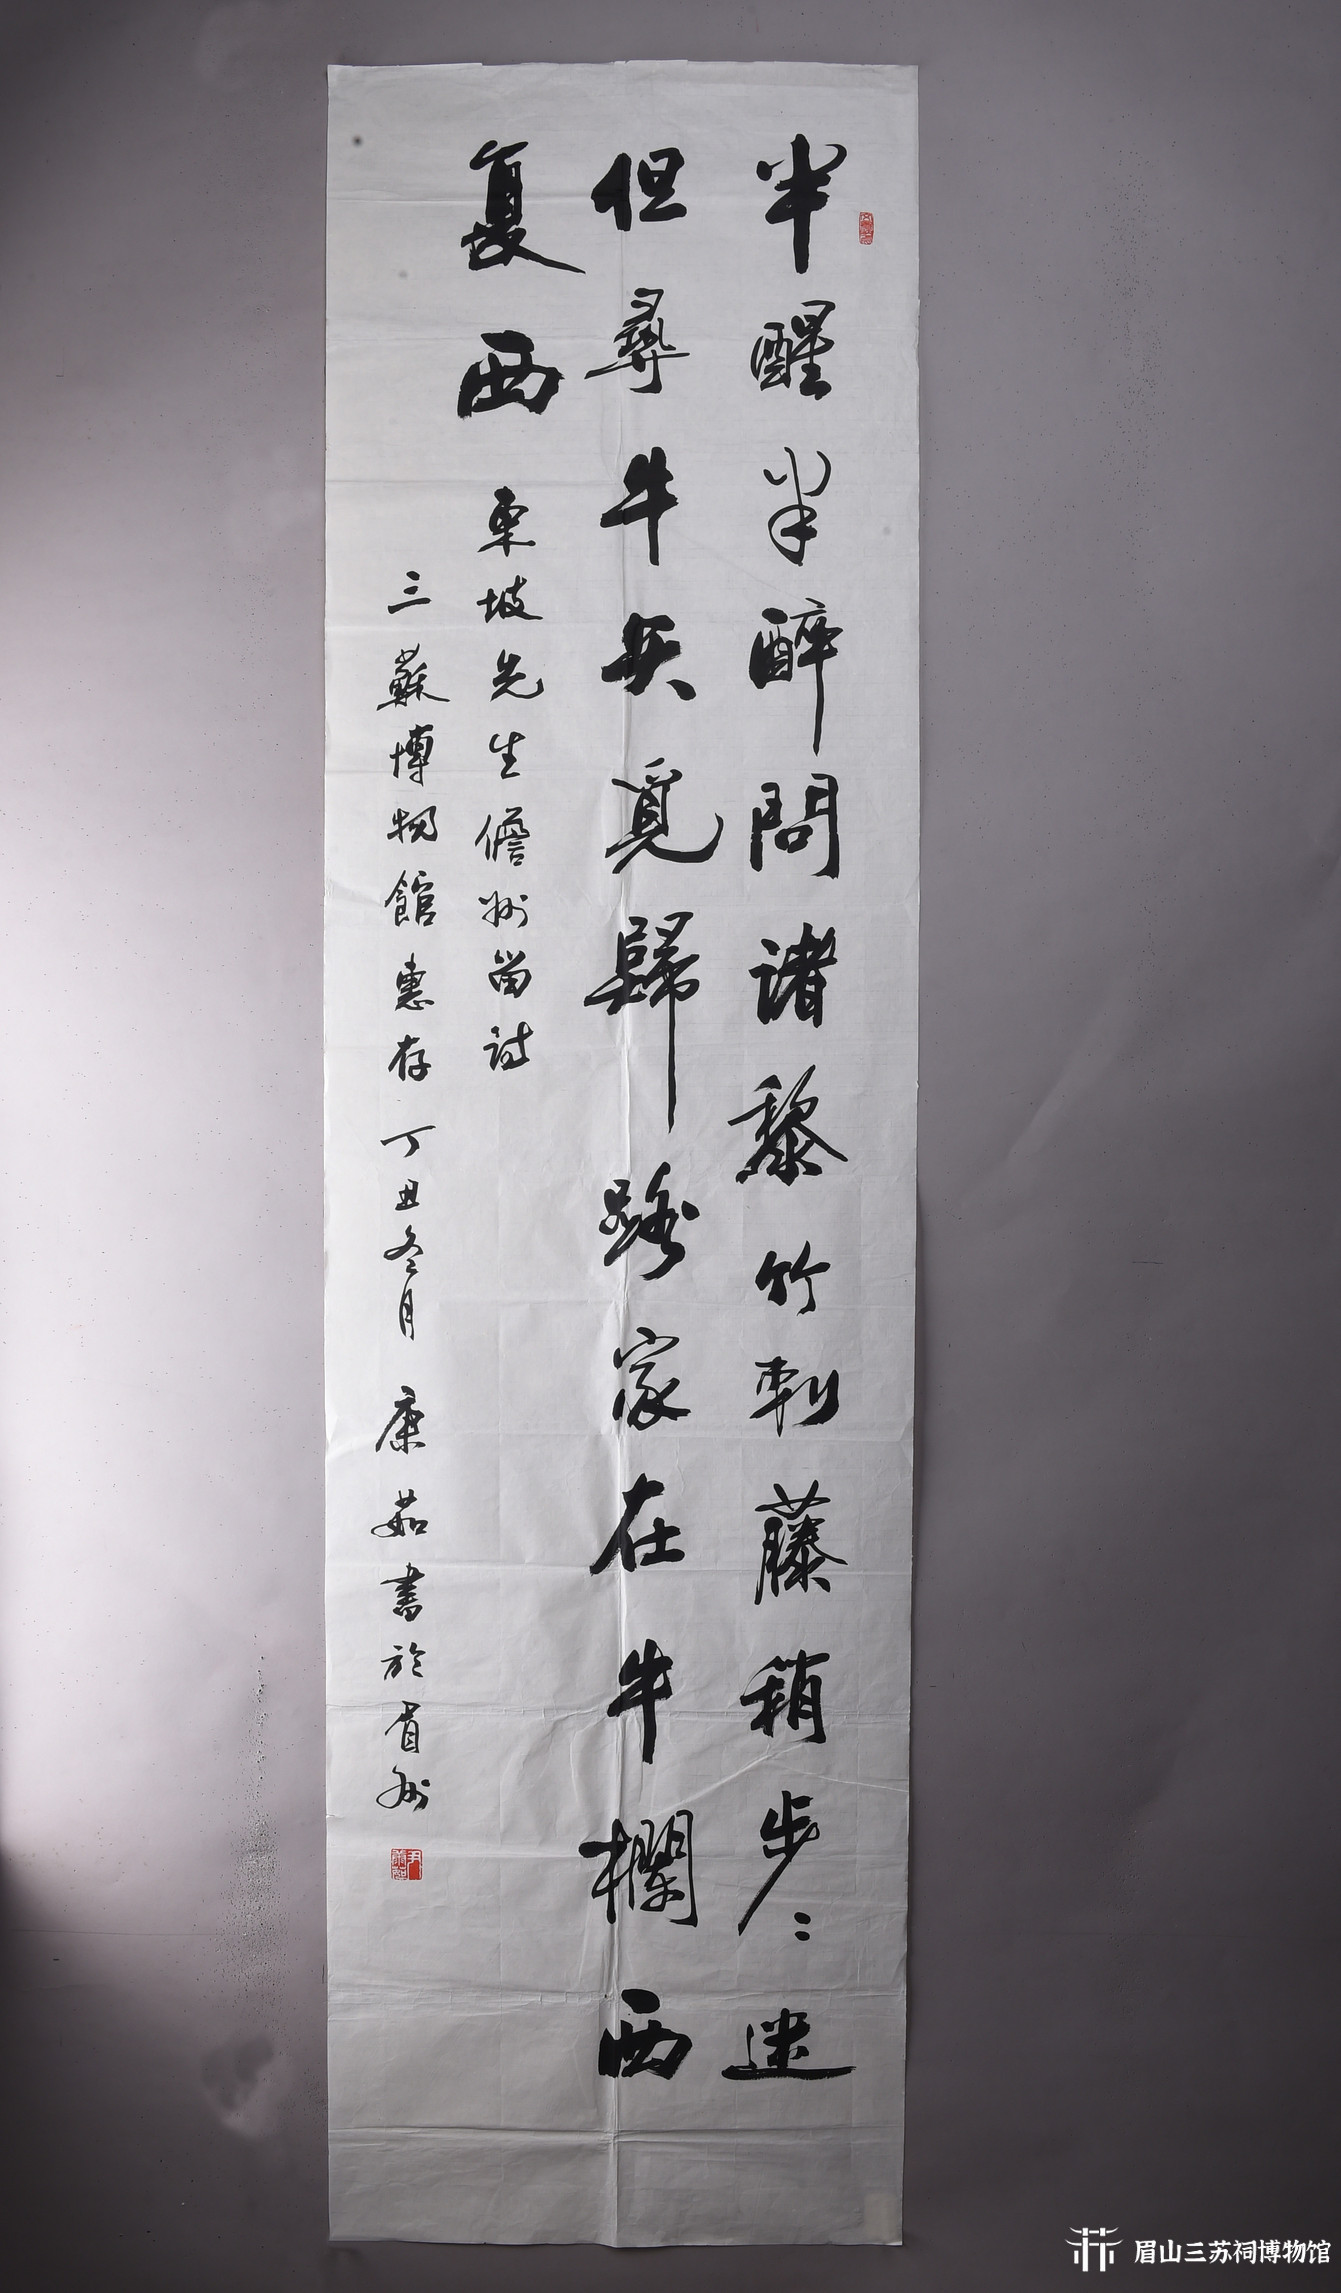 半醒半醉問諸黎竹刺藤稍步〻迷
但尋牛矢覓歸路家在牛欄西
夏西 東坡先生儋州留詩
三蘇博物館惠存丁丑冬月 康茹書於眉州
眉山三苏祠博物馆